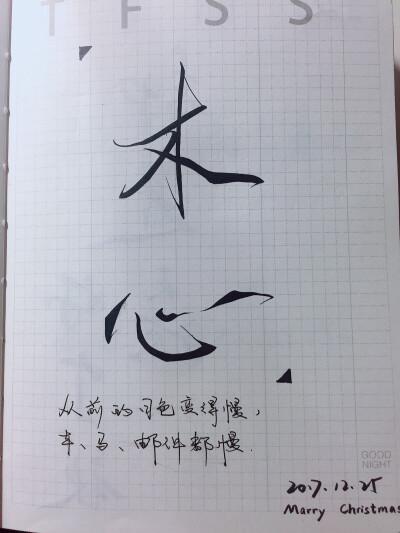 T F S S
木
心
从前的日色变得慢，
车、马、邮件都慢.
GOOD
NIGHT
2017.12.25
Marry Christmas